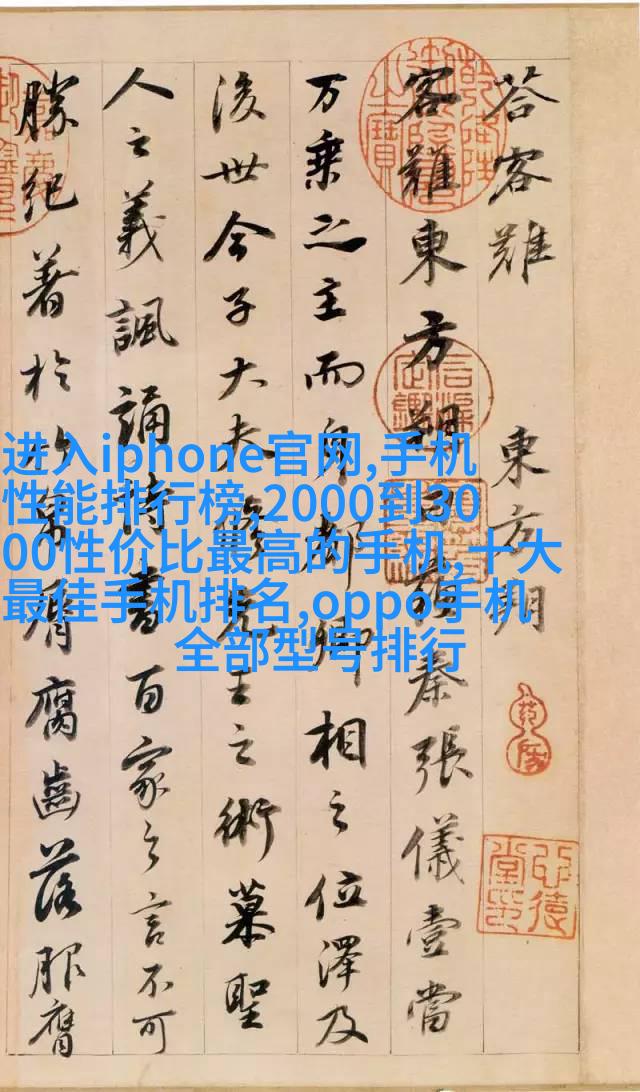 荅客難 東方朔
客難東方朔曰蘇秦張儀壹當
万乗之主而身都卿相之位澤及
後世今子大夫脩先王之術慕聖
人之義諷誦詩書百家之言不可
勝紀著於竹帛脣腐齒落服膺
进入iphone官网,手机
性能排行榜,2000到30
00性价比最高的手机,十大
最佳手机排名,oppo手机
全部型号排行